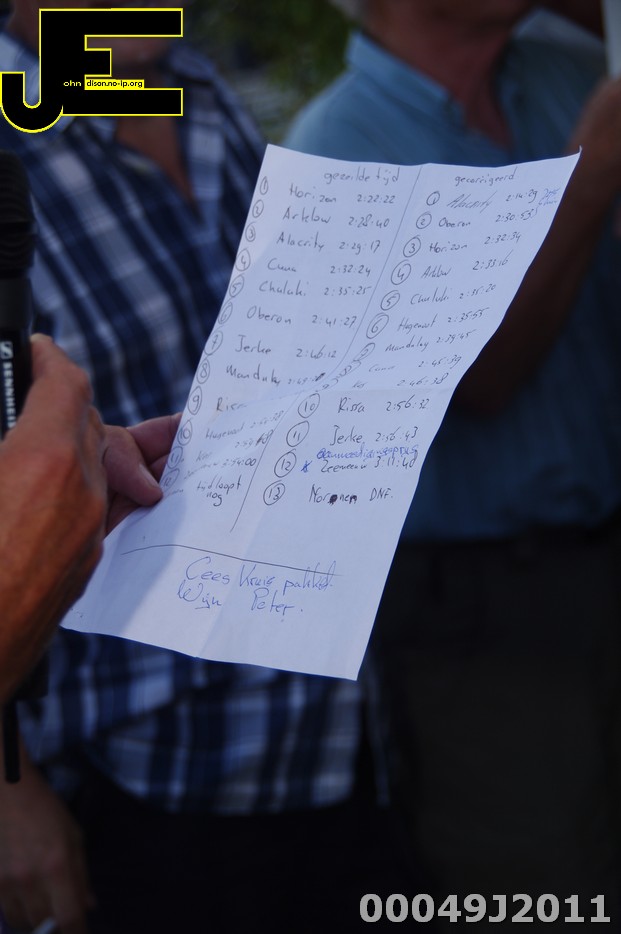 JE
ohn disonno-ip.org
SENNHEIS
gezeilde tijd
1 Horizon 2:22:22
2 Artelow 2:28:40
3 Alacrity 2:29:17
4 2:32:24
5 Chuluki 2:35:25
6 Oberon 2:41:27
7 Jerke 2:46:12
8 Mandalay
9 Rissa
10 Hagenoot
11
12 2:54:00
tijd loopt
nog
gecorrigeerd
1 Alacrity 2:14:29
2 Oberon 2:30:53
3 Horizon 2:32:34
4 Artelow 2:33:16
5 Chuluki 2:35:20
6 Hagenoot 2:35:55
7 Mandalay 2:39:45
2:45:39
2:46:38
10 Rissa 2:56:32
11 Jerke 2:56:43
12 Zeemeeuw 3:11:40
13 DNF.
Cees Kruis pakket
Wijn Peter.
00049J2011